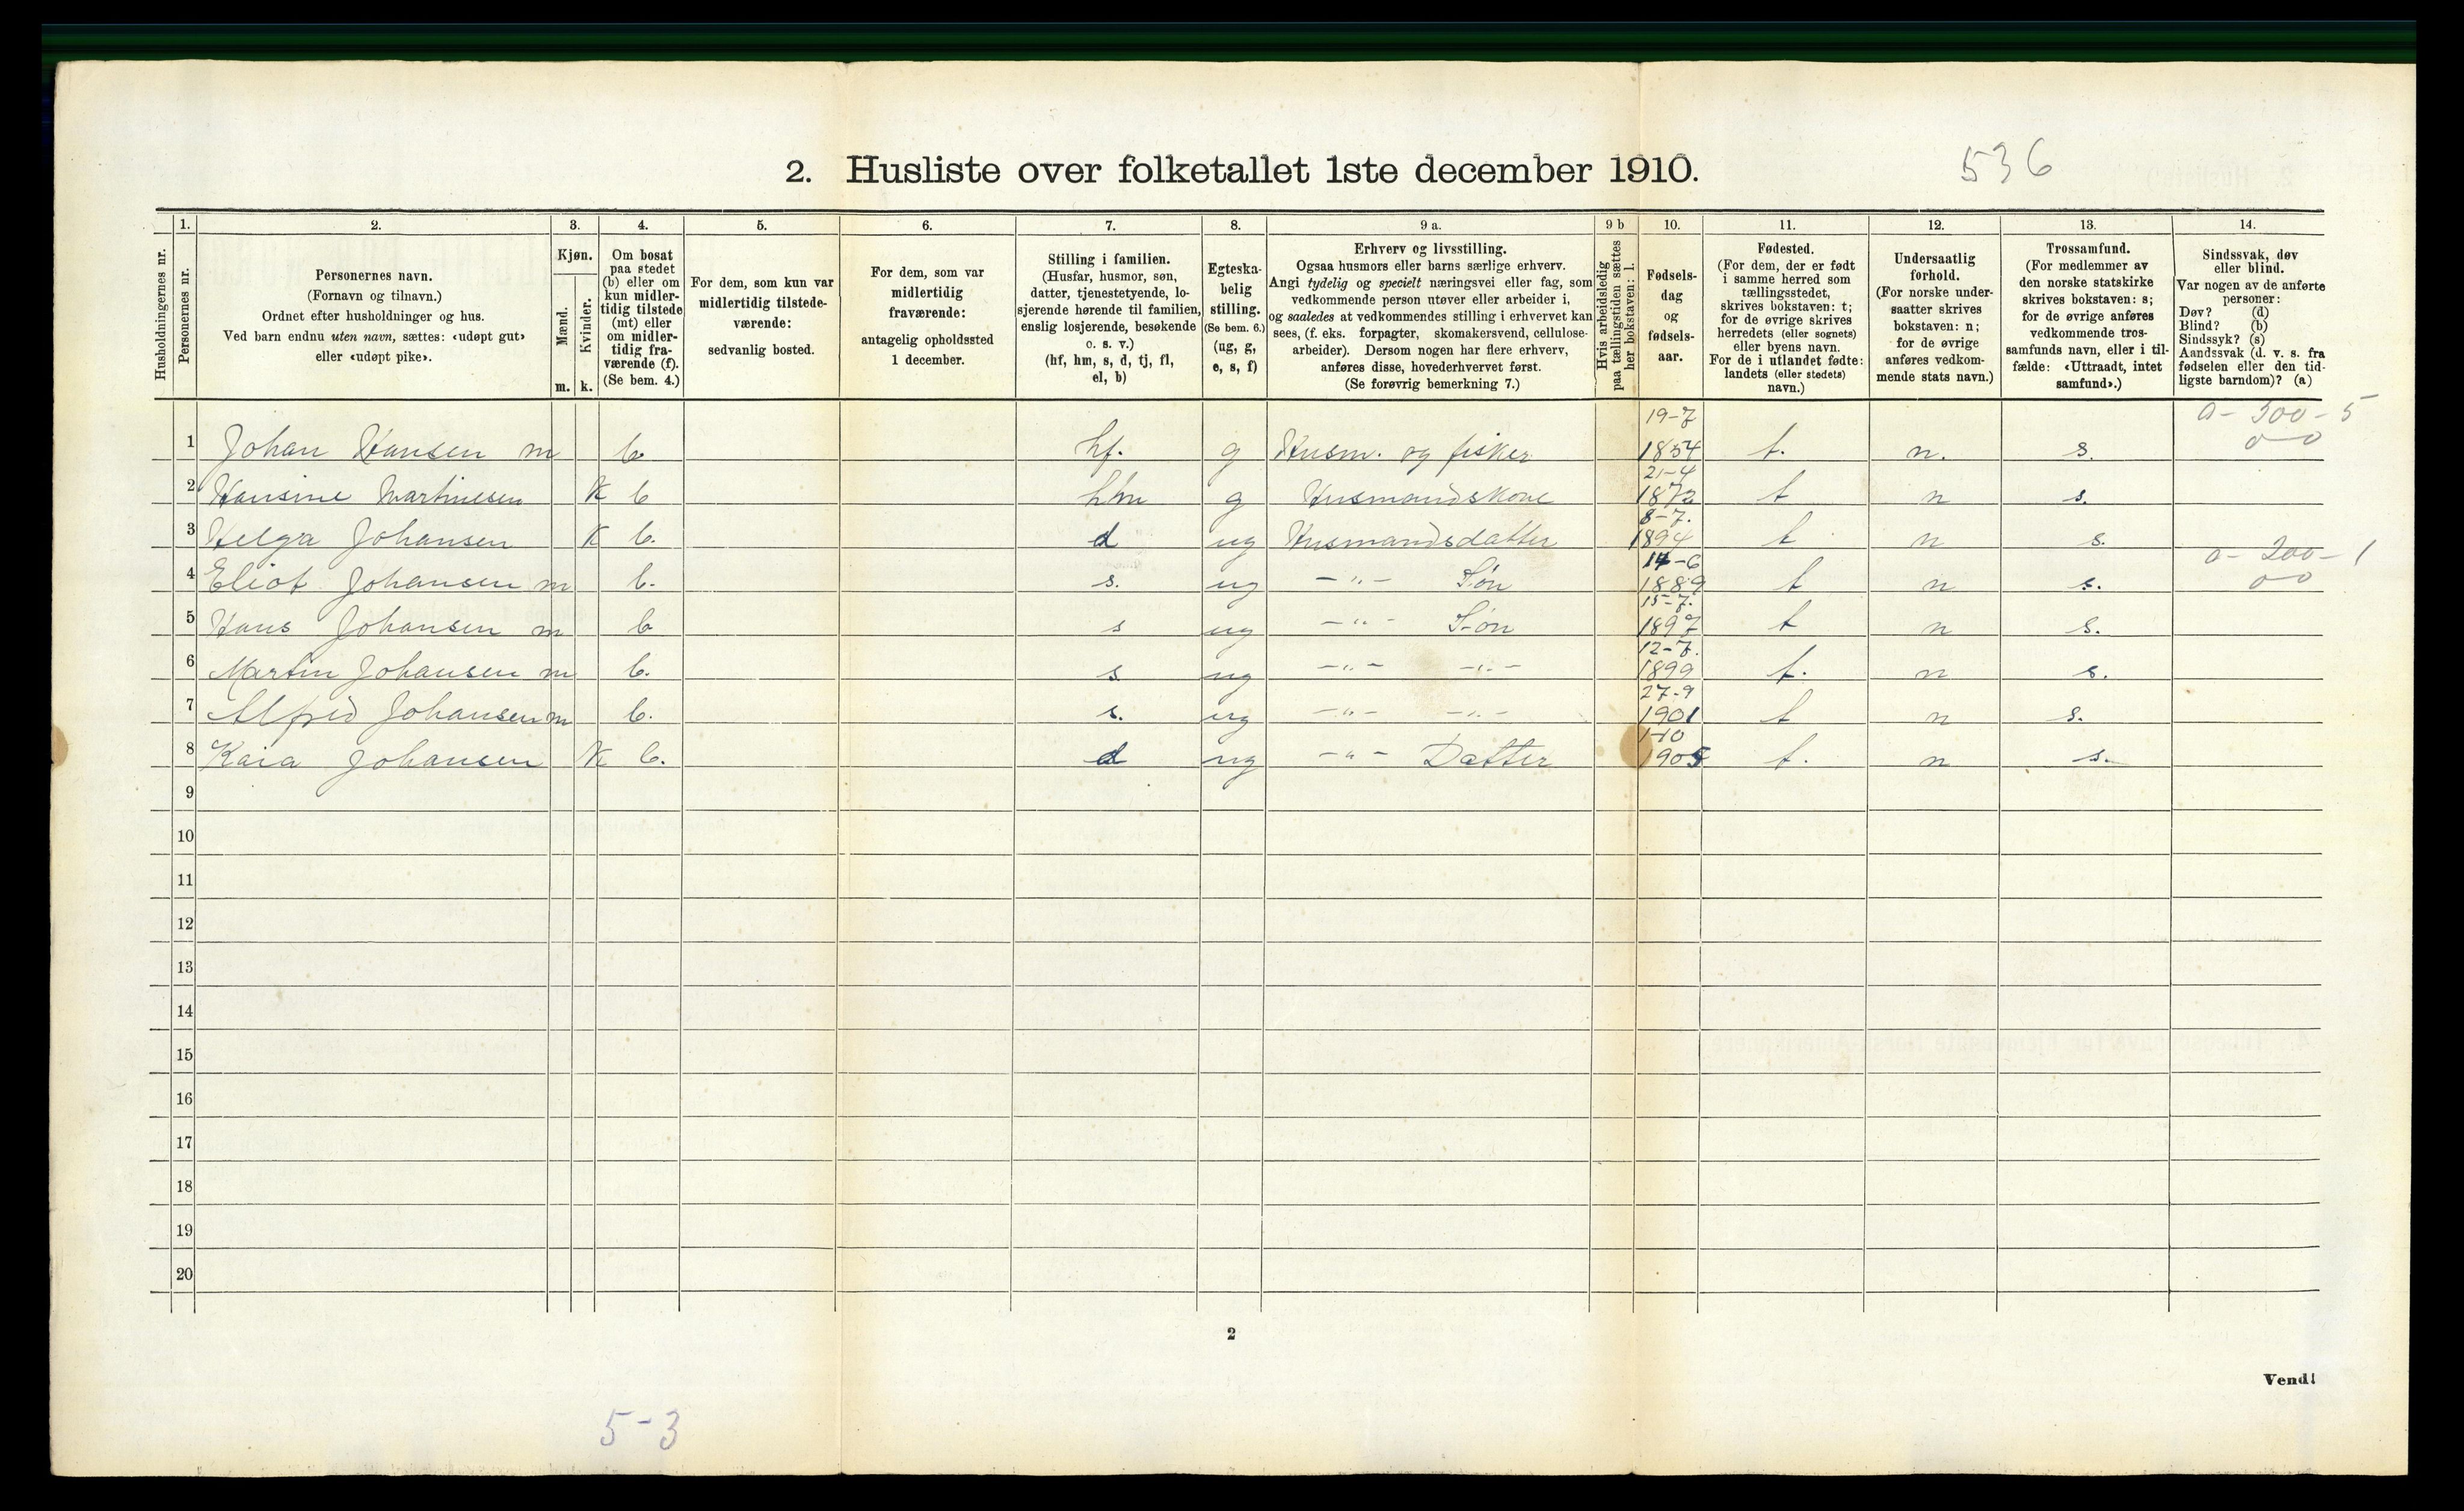 2. Husliste over folketallet 1ste december 1910.
536
Husholdningernes nr.
1.
Personernes nr.
2.
Personernes navn.
(Fornavn og tilnavn.)
Ordnet efter husholdninger og hus.
Ved barn endnu uten navn, sættes: «udøpt gut»
eller «udøpt pike».
3.
Kjøn.
Mænd.
Kvinder.
m. k.
4.
Om bosat
paa stedet
(b) eller om
kun midler-
tidig tilstede
(mt) eller
om midler-
tidig fra-
værende (f).
(Se bem. 4.)
5.
For dem, som kun var
midlertidig tilstede-
værende:
sedvanlig bosted.
6.
For dem, som var
midlertidig
fraværende:
antagelig opholdssted
1 december.
7.
Stilling i familien.
(Husfar, husmor, søn,
datter, tjenestetyende, lo-
sjerende hørende til familien,
enslig losjerende, besøkende
o. s. v.)
(hf, hm, s, d, tj, fl,
el, b)
8.
Egteska-
belig
stilling.
(Se bem. 6.)
(ug, g,
e, s, f)
9 a.
Erhverv og livsstilling.
Ogsaa husmors eller barns særlige erhverv.
Angi tydelig og specielt næringsvei eller fag, som
vedkommende person utøver eller arbeider i,
og saaledes at vedkommendes stilling i erhvervet kan
sees, (f. eks. forpagter, skomakersvend, cellulose-
arbeider). Dersom nogen har flere erhverv,
anføres disse, hovederhvervet først.
(Se forøvrig bemerkning 7.)
9 b
Hvis arbeidsledig
paa tællingstiden sættes
her bokstaven: l.
10.
Fødsels-
dag
og
fødsels-
aar.
11.
Fødested.
(For dem, der er født
i samme herred som
tællingsstedet,
skrives bokstaven: t;
for de øvrige skrives
herredets (eller sognets)
eller byens navn.
For de i utlandet fødte:
landets (eller stedets)
navn.)
12.
Undersaatlig
forhold.
(For norske under-
saatter skrives
bokstaven: n;
for de øvrige
anføres vedkom-
mende stats navn.)
13.
Trossamfund.
(For medlemmer av
den norske statskirke
skrives bokstaven: s;
for de øvrige anføres
vedkommende tros-
samfunds navn, eller i til-
fælde: «Uttraadt, intet
samfund».)
14.
Sindssvak, døv
eller blind.
Var nogen av de anførte
personer:
Døv? (d)
Blind? (b)
Sindssyk? (s)
Aandssvak (d. v. s. fra
fødselen eller den tid-
ligste barndom)? (a)
19-7 0 - 500 - 5
1 Johan Hansen m b hf. g Husm. og fisker 1854 t. n. s. 0 0
21-4
2 Hansine Martinesen K b hm g Husmandskone 1872 t n s.
8-7.
3 Helga Johansen K b. d ug Husmandsdatter 1894 t n s.
14-6 0 - 200 - 1
4 Eliot Johansen m b. s. ug -"- Søn 1889 t n s. 0 0
15-7.
5 Hans Johansen m b s ug -"- Søn 1897 t n s.
12-7.
6 Martin Johansen m b. s. ug -"- -"- 1899 t. n s.
27-9
7 Alfred Johansen m b. s. ug -"- -"- 1901 t n s.
1-10
8 Kaia Johansen K b. d ug -"- Datter 1905 t. n s.
9
10
11
12
13
14
15
16
17
18
19
20
2
Vend!
5-3